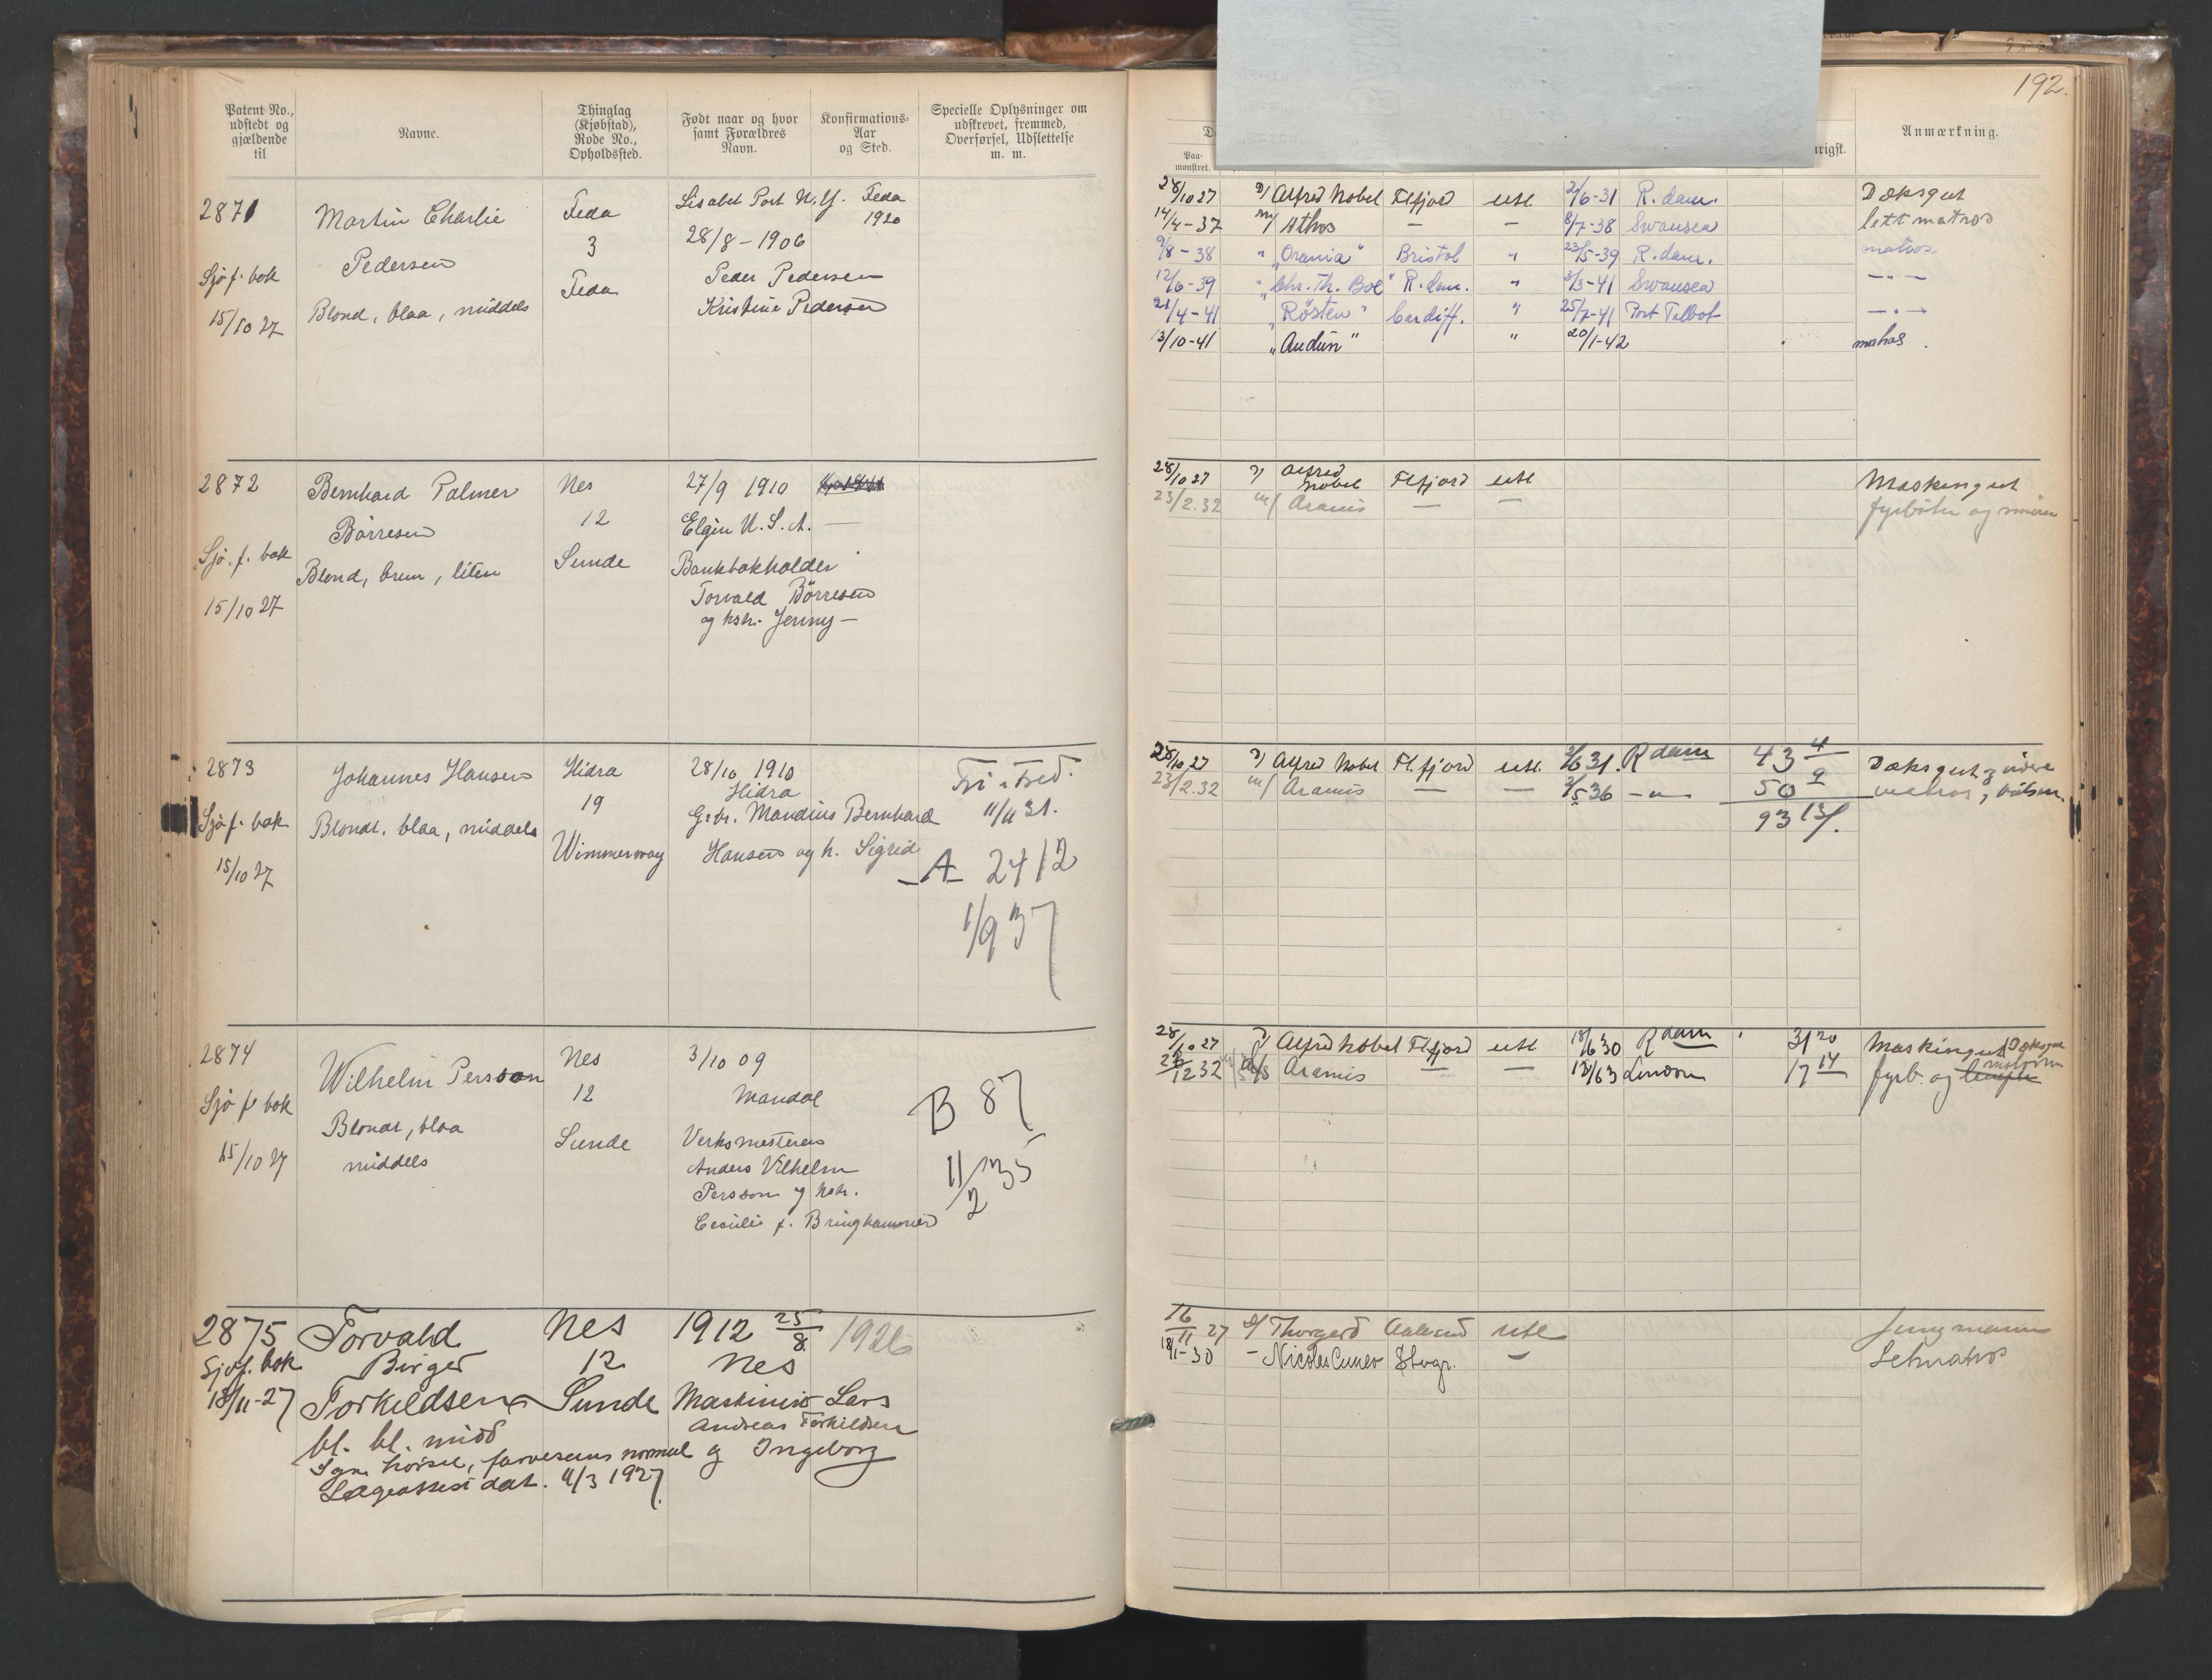 Patent No.,
udstedt og
gjældende
til
Navne.
Thinglag
(Kjøbstad),
Rode No.,
Opholdssted.
Født naar og hvor
samt Forældres
Navn.
Konfirmations-
Aar
og Sted.
Specielle Oplysninger om
udskrevet, fremmed,
Overførsel, Udslettelse
m. m.
2871
Sjøf. bok
15/10 27
Martin Charlie
Pedersen
Blond, blaa, middels
Feda
3
Feda
Lisabet Port N.Y.
28/8-1906
Peder Pedersen
Kristine Pedersen
Feda
1920
2872
Sjø. f. bok
15/10 27
Bernhard Palmer
Børresen
Blond, brun, liten
Nes
12
Sunde
27/9 1910
Elgin U.S.A.
Bankbokholder
Torvald Börresen
og hstr. Jenny —
2873
Sjøf. bok
15/10 27
Johannes Hansen
Blondt, blaa, middels
Hidra
19
28/10 1910
Hidra
Gbr. Mandius Bernhard
Hansen og h. Sigrid
Fri i Fred.
11/11 31.
A 2412
1/9 37
2874
Sjøf bok
15/10 27
Wilhelm Persson
Blondt, blaa
middels
Nes
12
Sunde
3/10 09
Mandal
Verksmesteren
Anders Vilhelm
Persson og hstr.
Cecilie f. Bringhammer
B 87
11/2 35
2875
Sjøf. bok
18/11-27
Torvald
Birger
Torkildsen
bl. bl. midd
Syn hørsel, farvesans normal
Lægeattest dat. 11/3 1927.
Nes
12
Sunde
1912 25/8
Nes
Maskinist Lars
Andreas Torkildsen
og Ingeborg
1926
192.
Paa-
mønstret.
Anmærkning.
28/10 27 D/ Alfred Nobel Flfjord utl 2/6-31 R.dam. Dæksgut
14/4-37 m/ Athos — — 8/7-38 Swansea lettmatros
9/8-38 " "Orania" Bristol " 23/5-39 R.dam. matros
12/6-39 " "Chr. Th. Boe" R.dam. " 3/3-41 Swansea — " —
21/4-41 "Rösten" Cardiff. " 25/7-41 Port Talbot — " —
13/10-41 "Audun" " 20/1-42 matros
28/10 27 D/ Alfred Nobel Flfjord utl Maskingut
23/2.32 m/ Aramis — — fyrbøter og smører
28/10 27 D/ Alfred Nobel Fl.fjord utl. 2/6 31. Rdam 43 4 Dæksgut
23/2.32 m/ Aramis — — 2/5 36 —"— 50 9 matros, båtsm.
93 13/.
28/10 27 D/ Alfred Nobel Flfjord utl 18/6 30 Rdam 31 20 Maskingut Dæksgut
12 32 Aramis — — London 17 14 fyrb. og motorm
16/11 27 D/ Thorgerd Aalesund utl Jungmann
18/1-30 — Nicolas Cuneo Sbvgr. — Letmatros